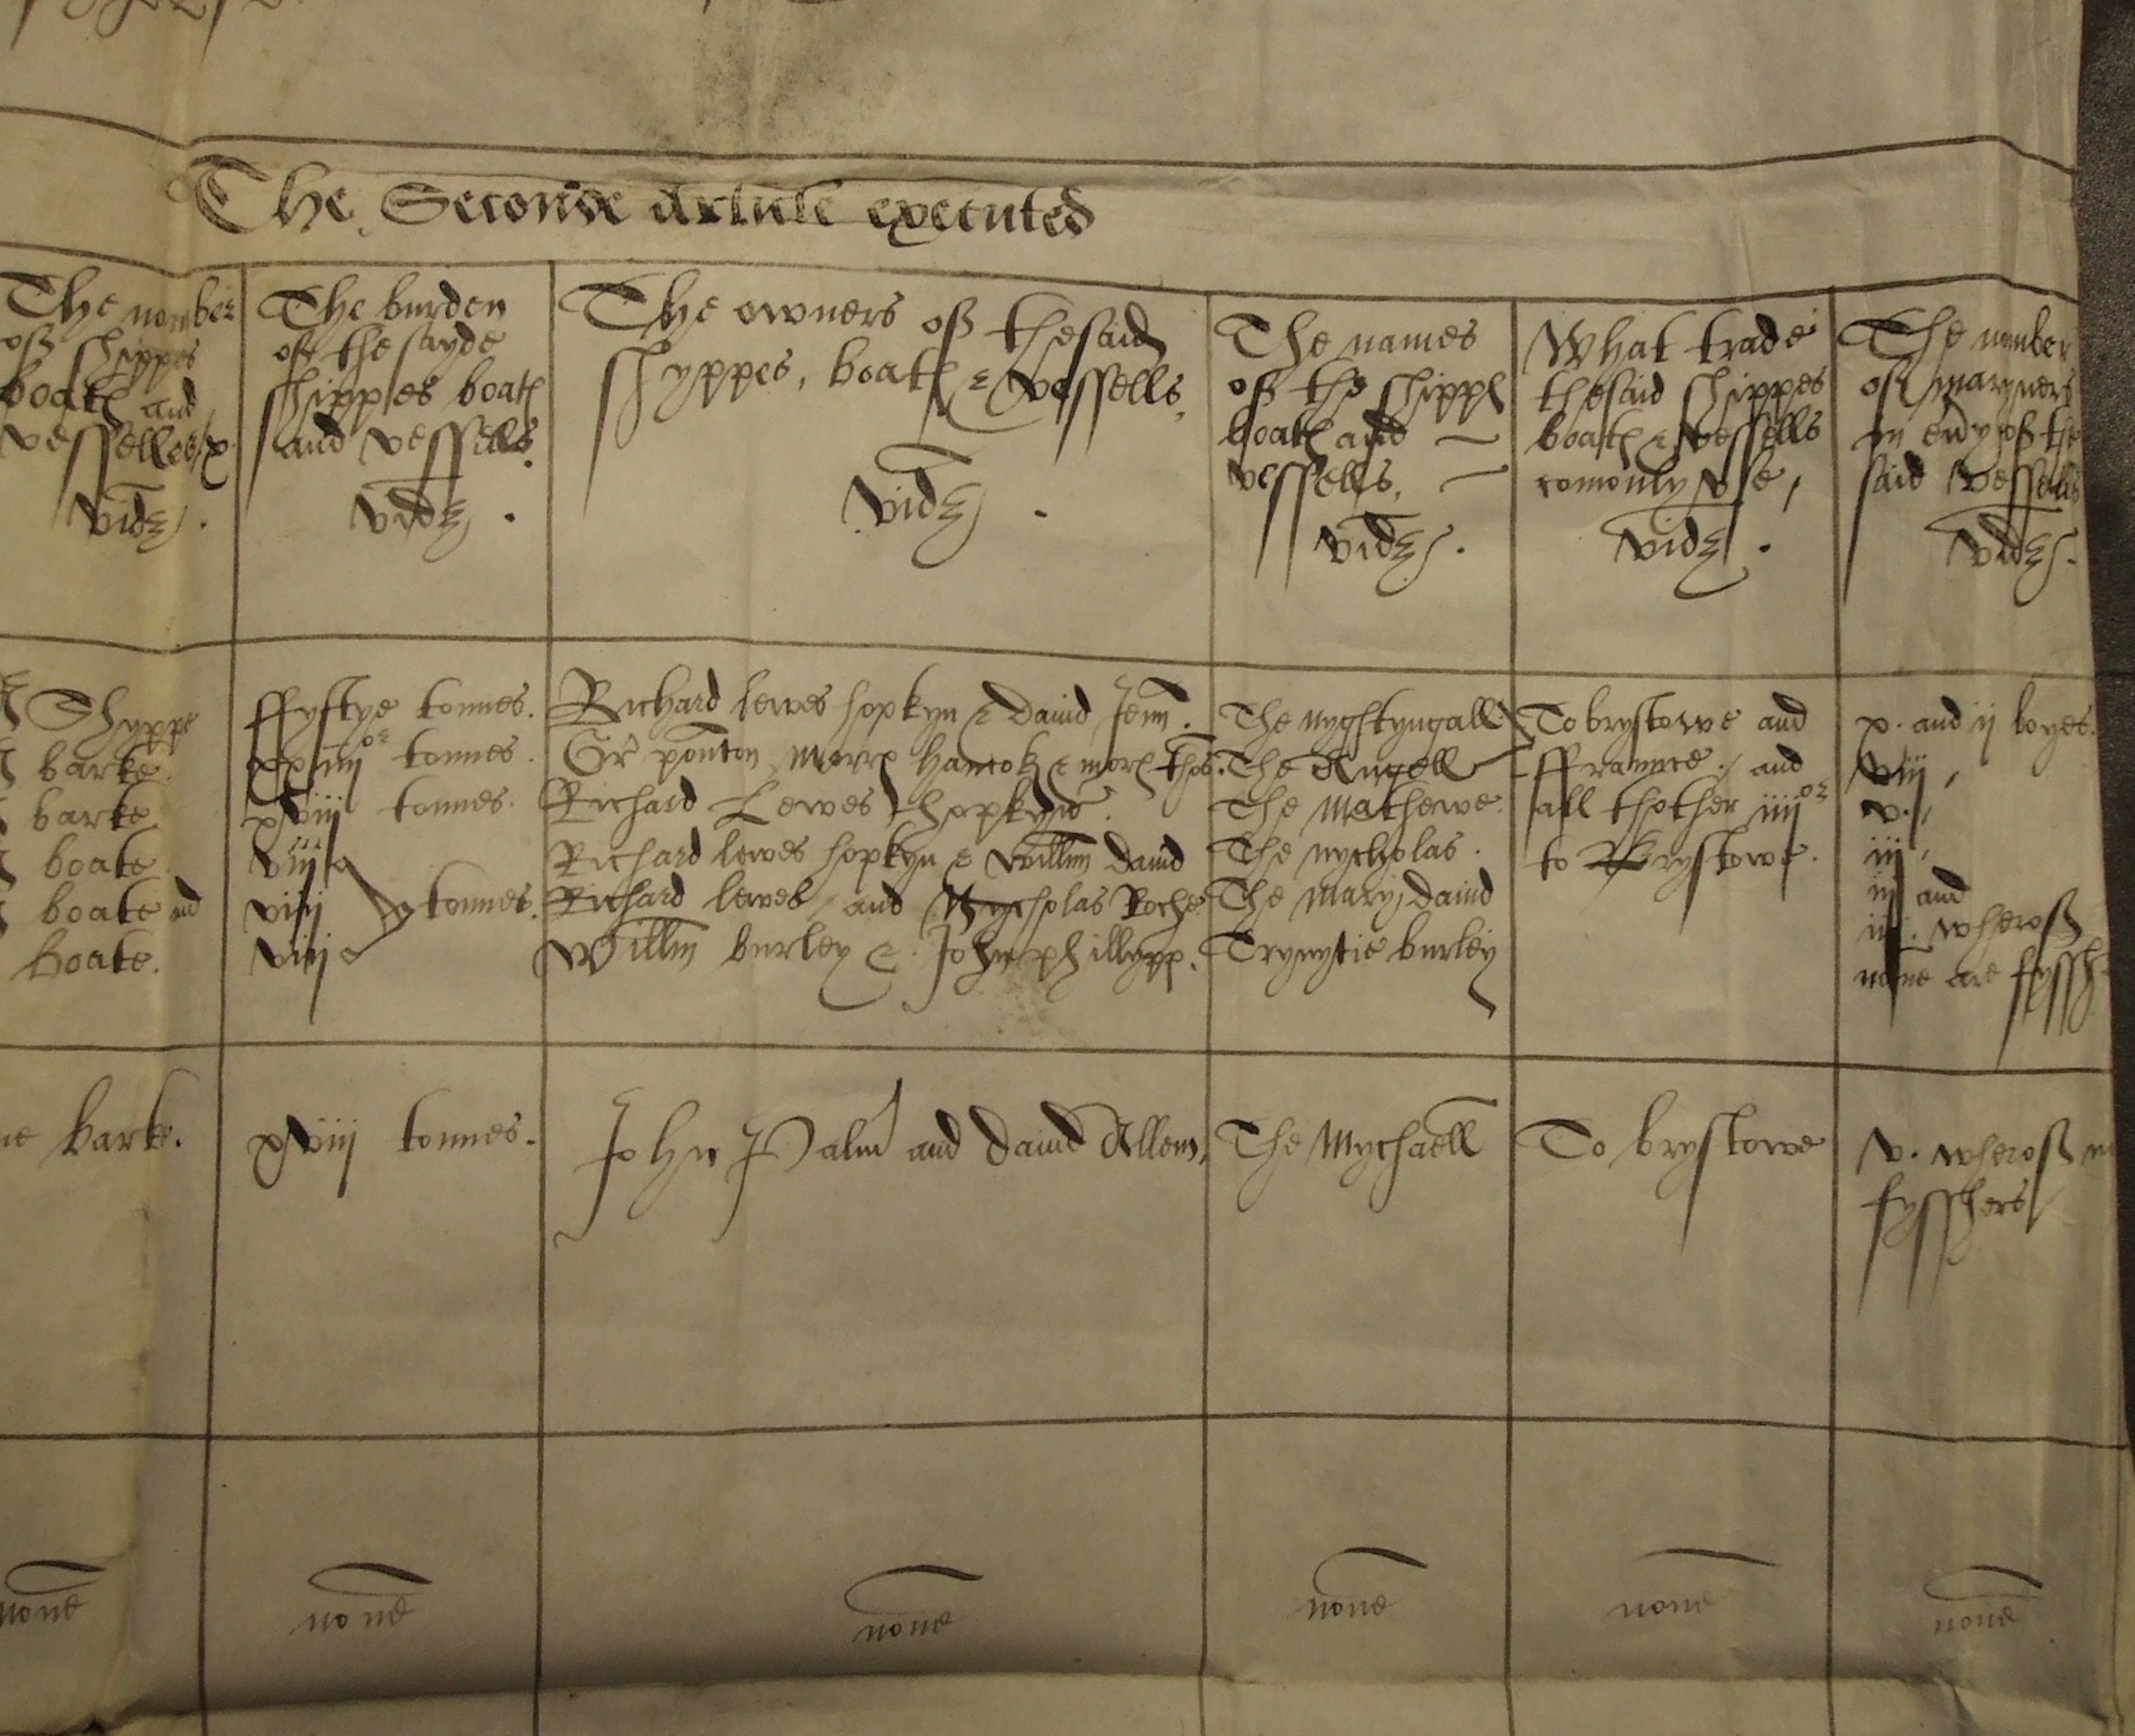 The Seconde Article executed
The nomber
off shippes
boat and
vesselles
vid
The burden
off the sayde
shippes boat
and vessells.
vid .
The owners off thesaid
shyppes, boat & vessells,
vid .
The names
off the shipp
boat and
vessells,
vid .
What trade
thesaid shippes
boat & vessells
comonly vse,
vid .
The nomber
off maryners
in euy off the
said vessells
vid .
Shyppe
barke.
barke
boate.
boate and
boate.
ffyftye tonnes.
xxiiijor tonnes.
xviij tonnes.
viij
viij tonnes.
viij
Richard lewes hopkyn & dauid Jenn.
Gr ponton, morr hancok & mor thos.
Richard Lewes hopkyn.
Richard lewes hopkyn & willm dauid
Richard lewes and Nycholas Roche
Willm burley & John phillypp.
The nyghtyngall
The Angell
The Mathewe.
The nycholas.
The mary dauid
Trynytie burley
To brystowe and
ffraunce, and
all thother iiijor
to Brystowe.
x. and ij boyes.
viij,
v.,
iij,
iij and
iij. wheroff
none are fyssh
barke.
xviij tonnes.
John Palm and dauid Allen,
The Mychaell
To brystowe
v. wheroff
fysshers
none
none
none
none
none
none